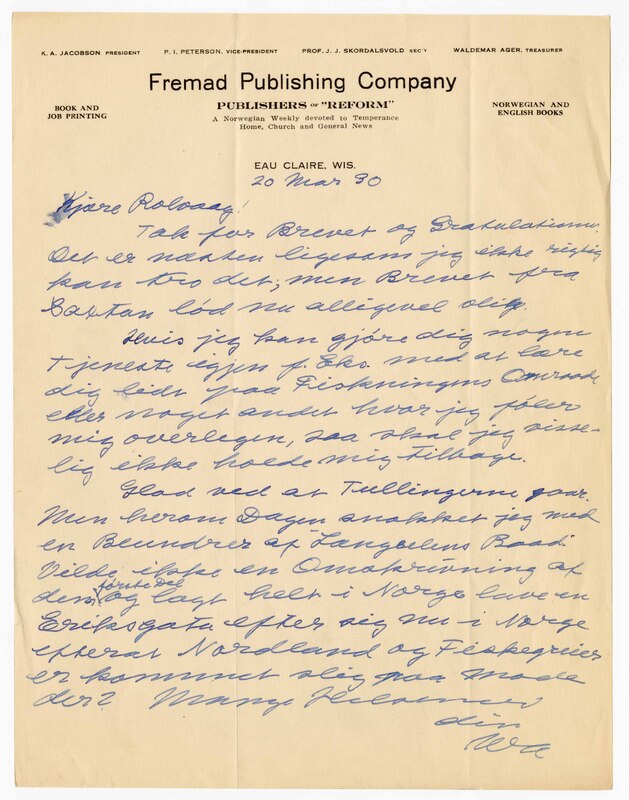 K. A. JACOBSON PRESIDENT P. I. PETERSON, VICE-PRESIDENT PROF. J. J. SKORDALSVOLD SEC'Y WALDEMAR AGER, TREASURER
Fremad Publishing Company
BOOK AND
JOB PRINTING
PUBLISHERS OF "REFORM"
A Norwegian Weekly devoted to Temperance
Home, Church and General News
NORWEGIAN AND
ENGLISH BOOKS
EAU CLAIRE, WIS.
20 Mar 30
Kjære Rolvaag!
Tak for Brevet og Gratulationen.
Det er næsten ligesom jeg ikke rigtig
kan tro det; men Brevet fra
Saxton lød nu alligevel slig.
Hvis jeg kan gjøre dig nogen
Tjeneste igjen f. Eks. med at lære
dig lidt paa Fiskningens Omraade
eller noget andet hvor jeg føler
mig overlegen, saa skal jeg visse-
lig ikke holde mig tilbage.
Glad ved at Tullingerne gaar.
Men herom Dagen snakket jeg med
en Beundrer af Længselens Baad.
Vilde ikke en Omskrivning af
den første Del og lagt helt i Norge have en
Eriksgata efter sig nu i Norge
efterat Nordland og Fiskegreier
er kommet slig paa Mode
der? Mange Hilsener
din
WA